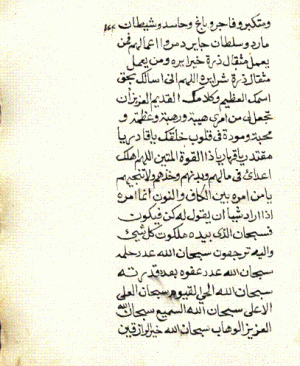 ومتكبر وفاجر وباغ وحاسد وشيطان
مارد وسلطان جاير دمر وا اعمالهم فمن
يعمل مثقال ذرة خيرا يره ومن يعمل
مثقال ذرة شرا يره اللهم انى اسالك بحق
اسمك العظيم وكلامك القديم العزيز ان
تجعل لى من امرى هيبة ورهبة وعظمة و
محبة ومودة فى قلوب خلقك يا قادر يا
مقتدر يا قهار يا ذا القوة المتين اللهم اهلك
اعدائى فى مالهم وبدنهم وخذهم ولا تنجيهم
يا من امره بين الكاف والنون انما امره
اذا اراد شيا ان يقول له كن فيكون
فسبحان الذى بيده ملكوت كل شيئ
واليه ترجعون سبحان الله عدد حلمه
سبحان الله عدد عفوه بعد قدرته
سبحان الله الحي القيوم سبحان العلى
الاعلى سبحان الله السميع سبحان الله
العزيز الوهاب سبحان الله خير الرازقين